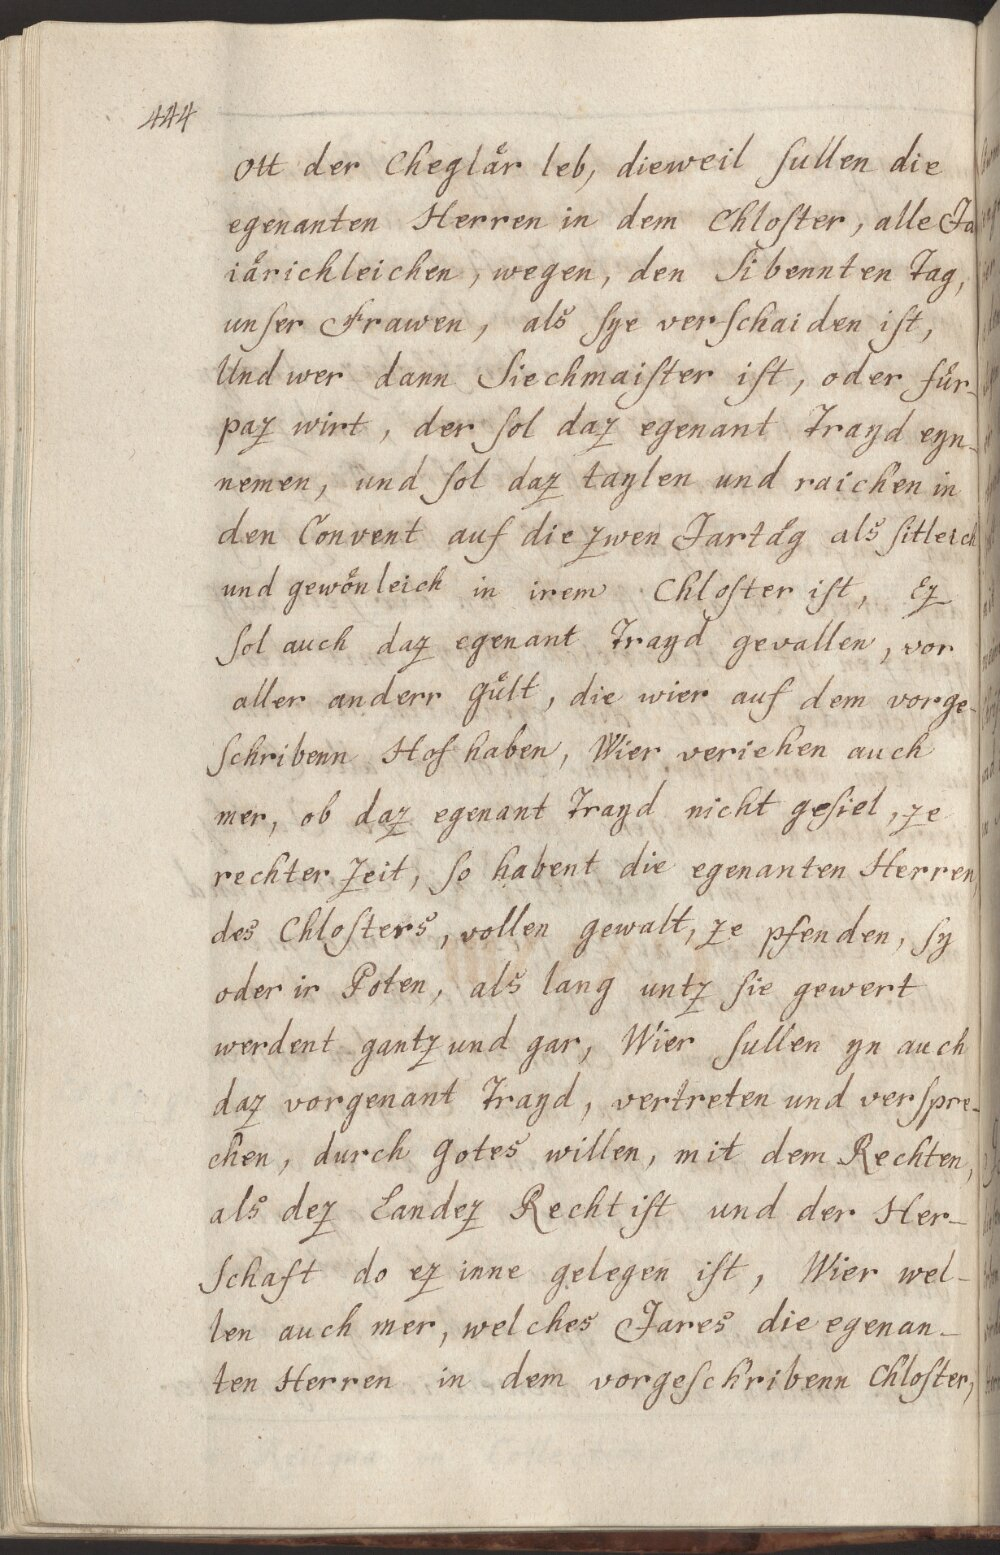 444
Ott der Cheglår leb, dieweil sullen die
egenanten Herren in dem Chloster, alle Ja
iårichleichen, wegen, den Sibennten Tag,
unser Frawen, als sye verschaiden ist,
Und wer dann Siechmaister ist, oder fůr-
paz wirt, der sol daz egenant Trayd eyn-
nemen, und sol daz taylen und raichen in
den Convent auf die zwen Jartåg als sitleich
und gewônleich in irem Chloster ist, Ez
sol auch daz egenant Trayd gevallen, vor
aller anderr gůlt, die wier auf dem vorge-
schribenn Hof haben, Wier veriehen auch
mer, ob daz egenant Trayd nicht gefiel, ze
rechter Zeit, so habent die egenanten Herren
des Chlosters, vollen gewalt, ze pfenden, sy
oder ir Poten, als lang untz sie gewert
werdent gantz und gar, Wier sullen yn auch
daz vorgenant Trayd, vertreten und verspre-
chen, durch Gotes willen, mit dem Rechten,
als dez Landez Recht ist und der Her-
schaft do ez inne gelegen ist, Wier wel-
len auch mer, welches Jares die egenan-
ten Herren in dem vorgeschribenn Chloster,